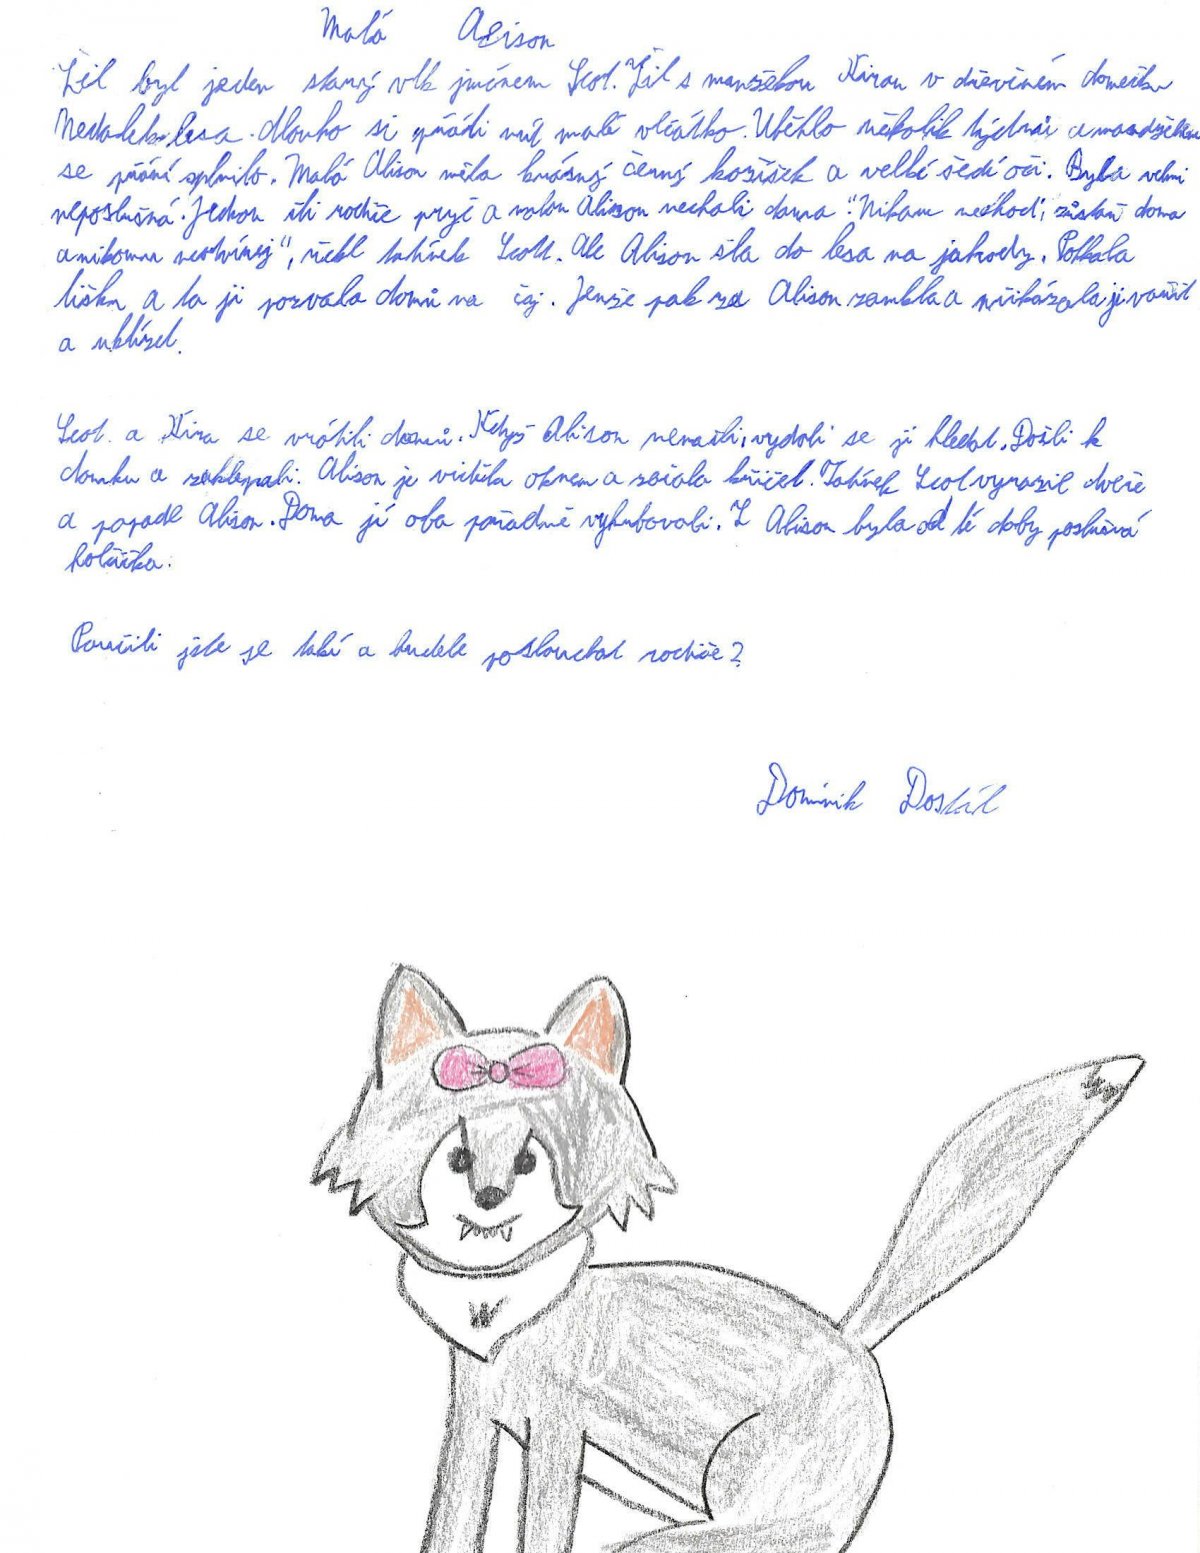 Malá Alison
Žil byl jeden starý vlk jménem Scot. Žil s manželkou Kirou v dřevěném domečku
Nedalek lesa. dlouho si přáli mít malé vlčátko. Uběhlo několik týdnů a manželům
se přání splnilo. Malá Alison měla krásný černý kožíšek a velké šedé oči. Byla velmi
neposlušná. Jednou šli rodiče pryč a malou Alison nechali doma. "Nikam nechoď, zůstaň doma
a nikomu neotvírej", řekl tatínek Scott. Ale Alison šla do lesa na jahody. Potkala
lišku a ta ji pozvala domů na čaj. Jenže pak za Alison zamkla a přikázala ji vařit
a uklízet.
Scot a Kira se vrátili domů. Když Alison nenašli, vydali se ji hledat. Došli k
domku a zaklepali. Alison je viděla oknem a začala křičet. Tatínek Scot vyrazil dveře
a popadl Alison. Doma jí oba pořádně vyhubovali. Z Alison byla od té doby poslušná
holčička.
Poučili jste se také a budete poslouchat rodiče?
Dominik Dostál
W